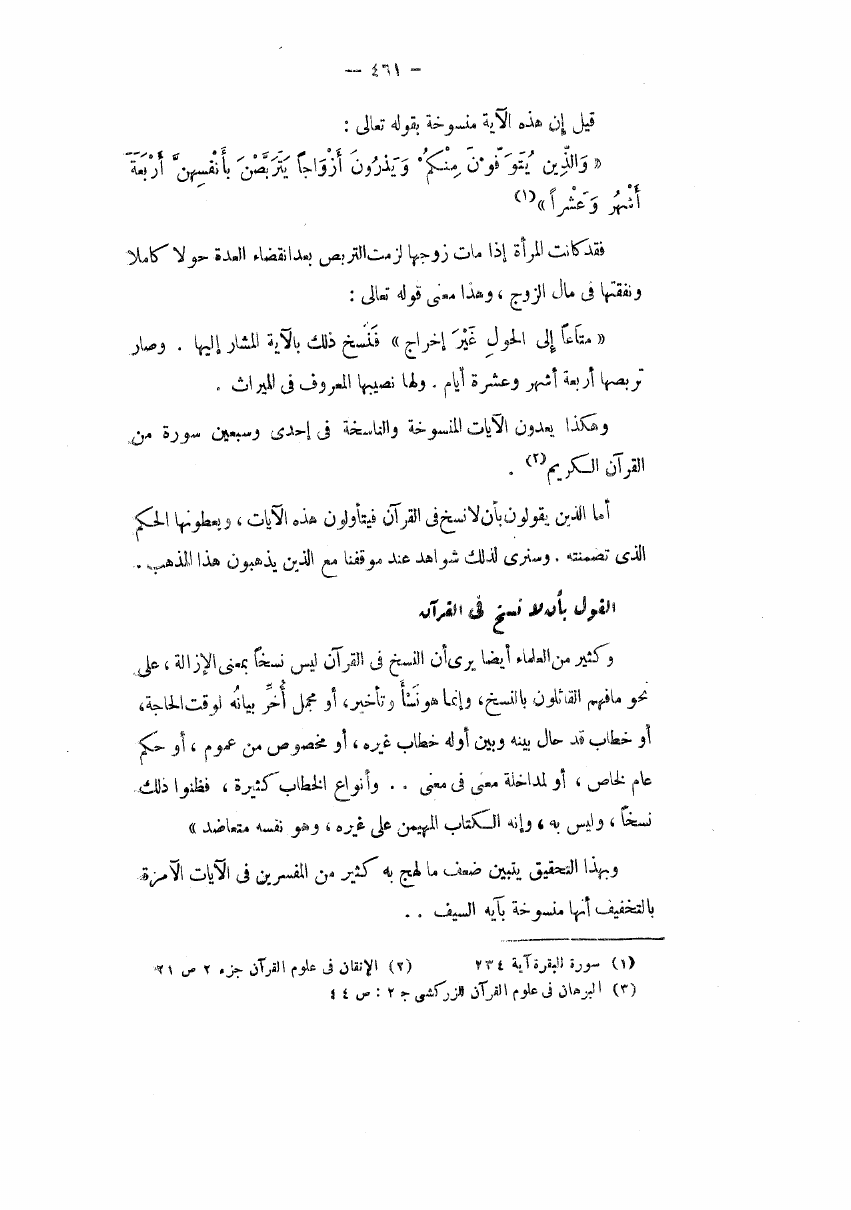 — ٤٦١ —
قيل إن هذه الآية منسوخة بقوله تعالى :
« وَالَّذِين يُتَوَفَّوْنَ مِنْكُمْ وَيَذَرُونَ أَزْوَاجاً يَتَرَبَّصْنَ بِأَنْفُسِهِنَّ أَرْبَعَةَ
أَشْهُرٍ وَعَشْراً »(١)
فقد كانت المرأة إذا مات زوجها لزمت التربص بعد انقضاء العدة حولا كاملا
ونفقتها فى مال الزوج ، وهذا معنى قوله تعالى :
« متَاعاً إلى الحولِ غَيْرَ إخراج » فَنُسخ ذلك بالآية المشار إليها . وصار
تربصها أربعة أشهر وعشرة أيام . ولها نصيبها المعروف فى الميراث .
وهكذا يعدون الآيات المنسوخة والناسخة فى إحدى وسبعين سورة من
القرآن الكريم(٢) .
أما الذين يقولون بأن لا نسخ فى القرآن فيتأولون هذه الآيات ، ويعطونها الحكم
الذى تضمنته . وسنرى لذلك شواهد عند موقفنا مع الذين يذهبون هذا المذهب .
القول بأن لا نسخ فى القرآن
وكثير من العلماء أيضا يرى أن النسخ فى القرآن ليس نسخاً بمعنى الإزالة ، على
نحو مافهم القائلون بالنسخ ، وإنما هو نَسْأ وتأخير ، أو مجمل أُخِّر بيانُه لوقت الحاجة ،
أو خطاب قد حال بينه وبين أوله خطاب غيره ، أو مخصوص من عموم ، أو حكم
عام لخاص ، أو لمداخلة معنى فى معنى . . وأنواع الخطاب كثيرة ، فظنوا ذلك
نسخاً ، وليس به ، وإنه الكتاب المهيمن على غيره ، وهو نفسه متعاضد »
وبهذا التحقيق يتبين ضعف ما لهج به كثير من المفسرين فى الآيات الآمرة
بالتخفيف أنها منسوخة بآيه السيف . .
(١) سورة البقرة آية ٢٣٤ (٢) الإتقان فى علوم القرآن جزء ٢ ص ٢١
(٣) البرهان فى علوم القرآن للزركشى ج ٢ : ص ٤٤